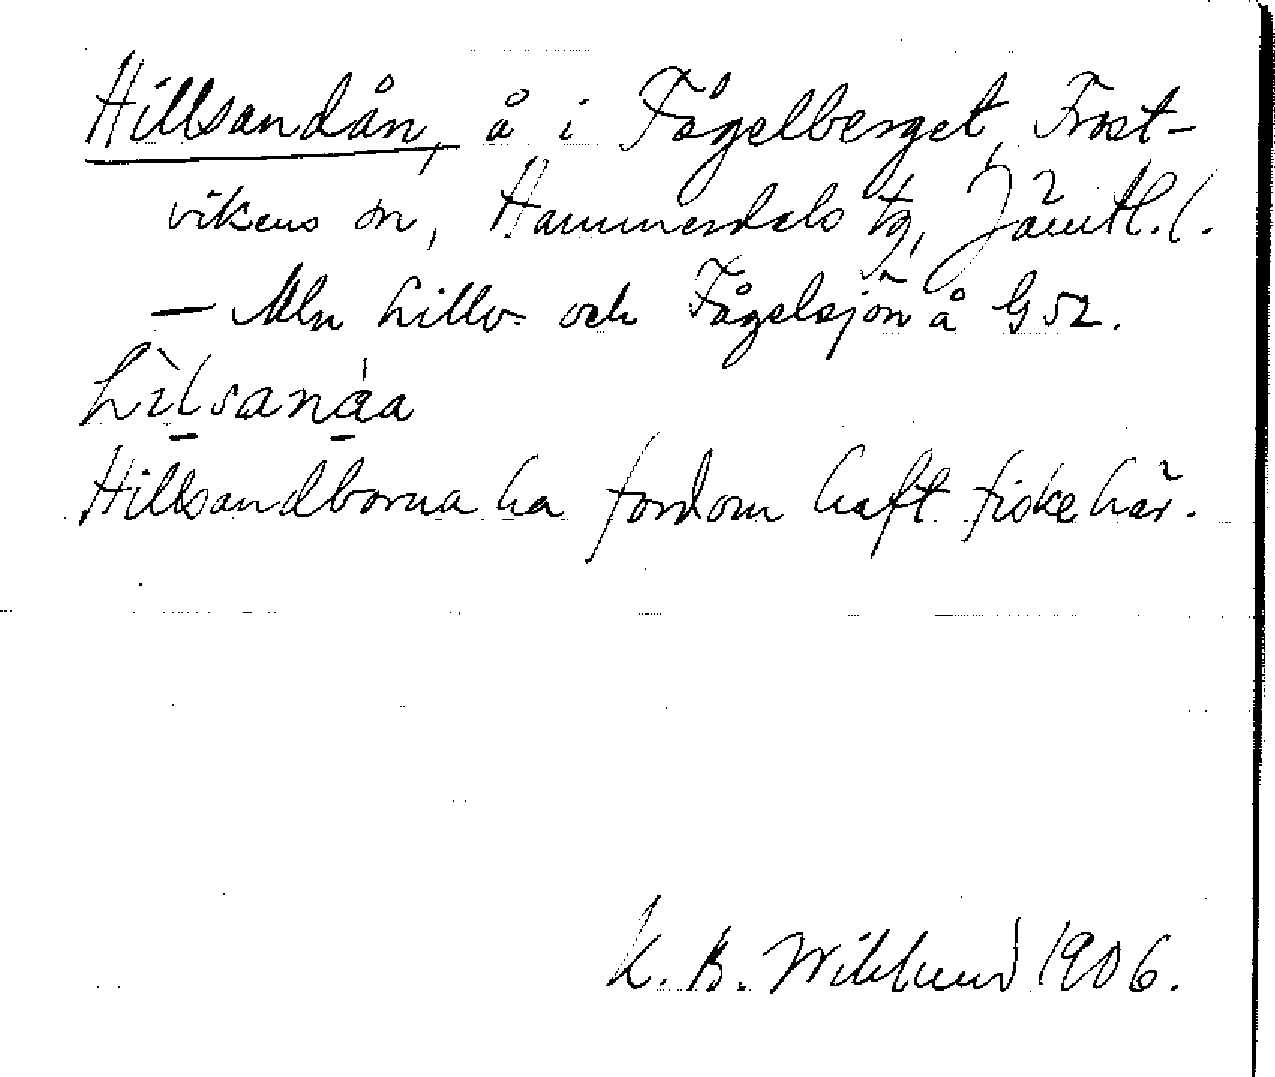 Hillsandån, å i Fågelberget, Frost-
vikens sn, Hammerdals tg, Jämtl. l.
— Mln Lillv. och Fågelsjön å G 52.
hìlsanáa
Hillsandborna ha fordom haft fiske här.
K. B. Wiklund 1906.